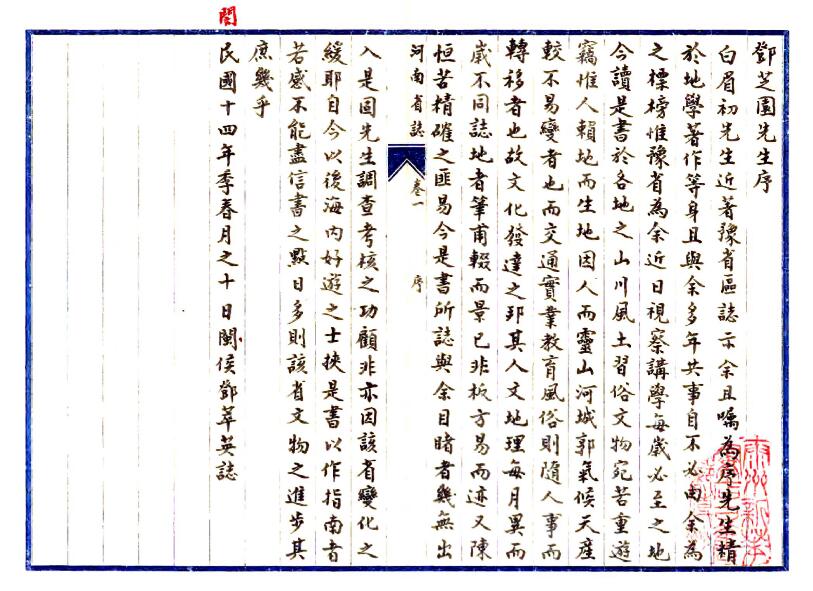 鄧芝園先生序
白眉初先生近著豫省區誌示余且囑為序先生精
於地學著作等身且與余多年共事自不必由余為
之標榜惟豫省為余近日視察講學每歲必至之地
今讀是書於各地之山川風土習俗文物宛若重遊
竊惟人賴地而生地因人而靈山河城郭氣候天產
較不易變者也而交通實業教育風俗則隨人事而
轉移者也故文化發達之邦其人文地理每月異而
歲不同誌地者筆甫輟而景已非板方易而迹又陳
恒苦精確之匪易今是書所誌與余目睹者幾無出
河南省誌 卷一 序
入是固先生調查考核之功顧非亦因該省變化之
緩耶自今以後海內好遊之士挾是書以作指南者
若感不能盡信書之點日多則該省文物之進步其
庶幾乎
民國十四年季春月之十日閩侯鄧萃英誌
閩